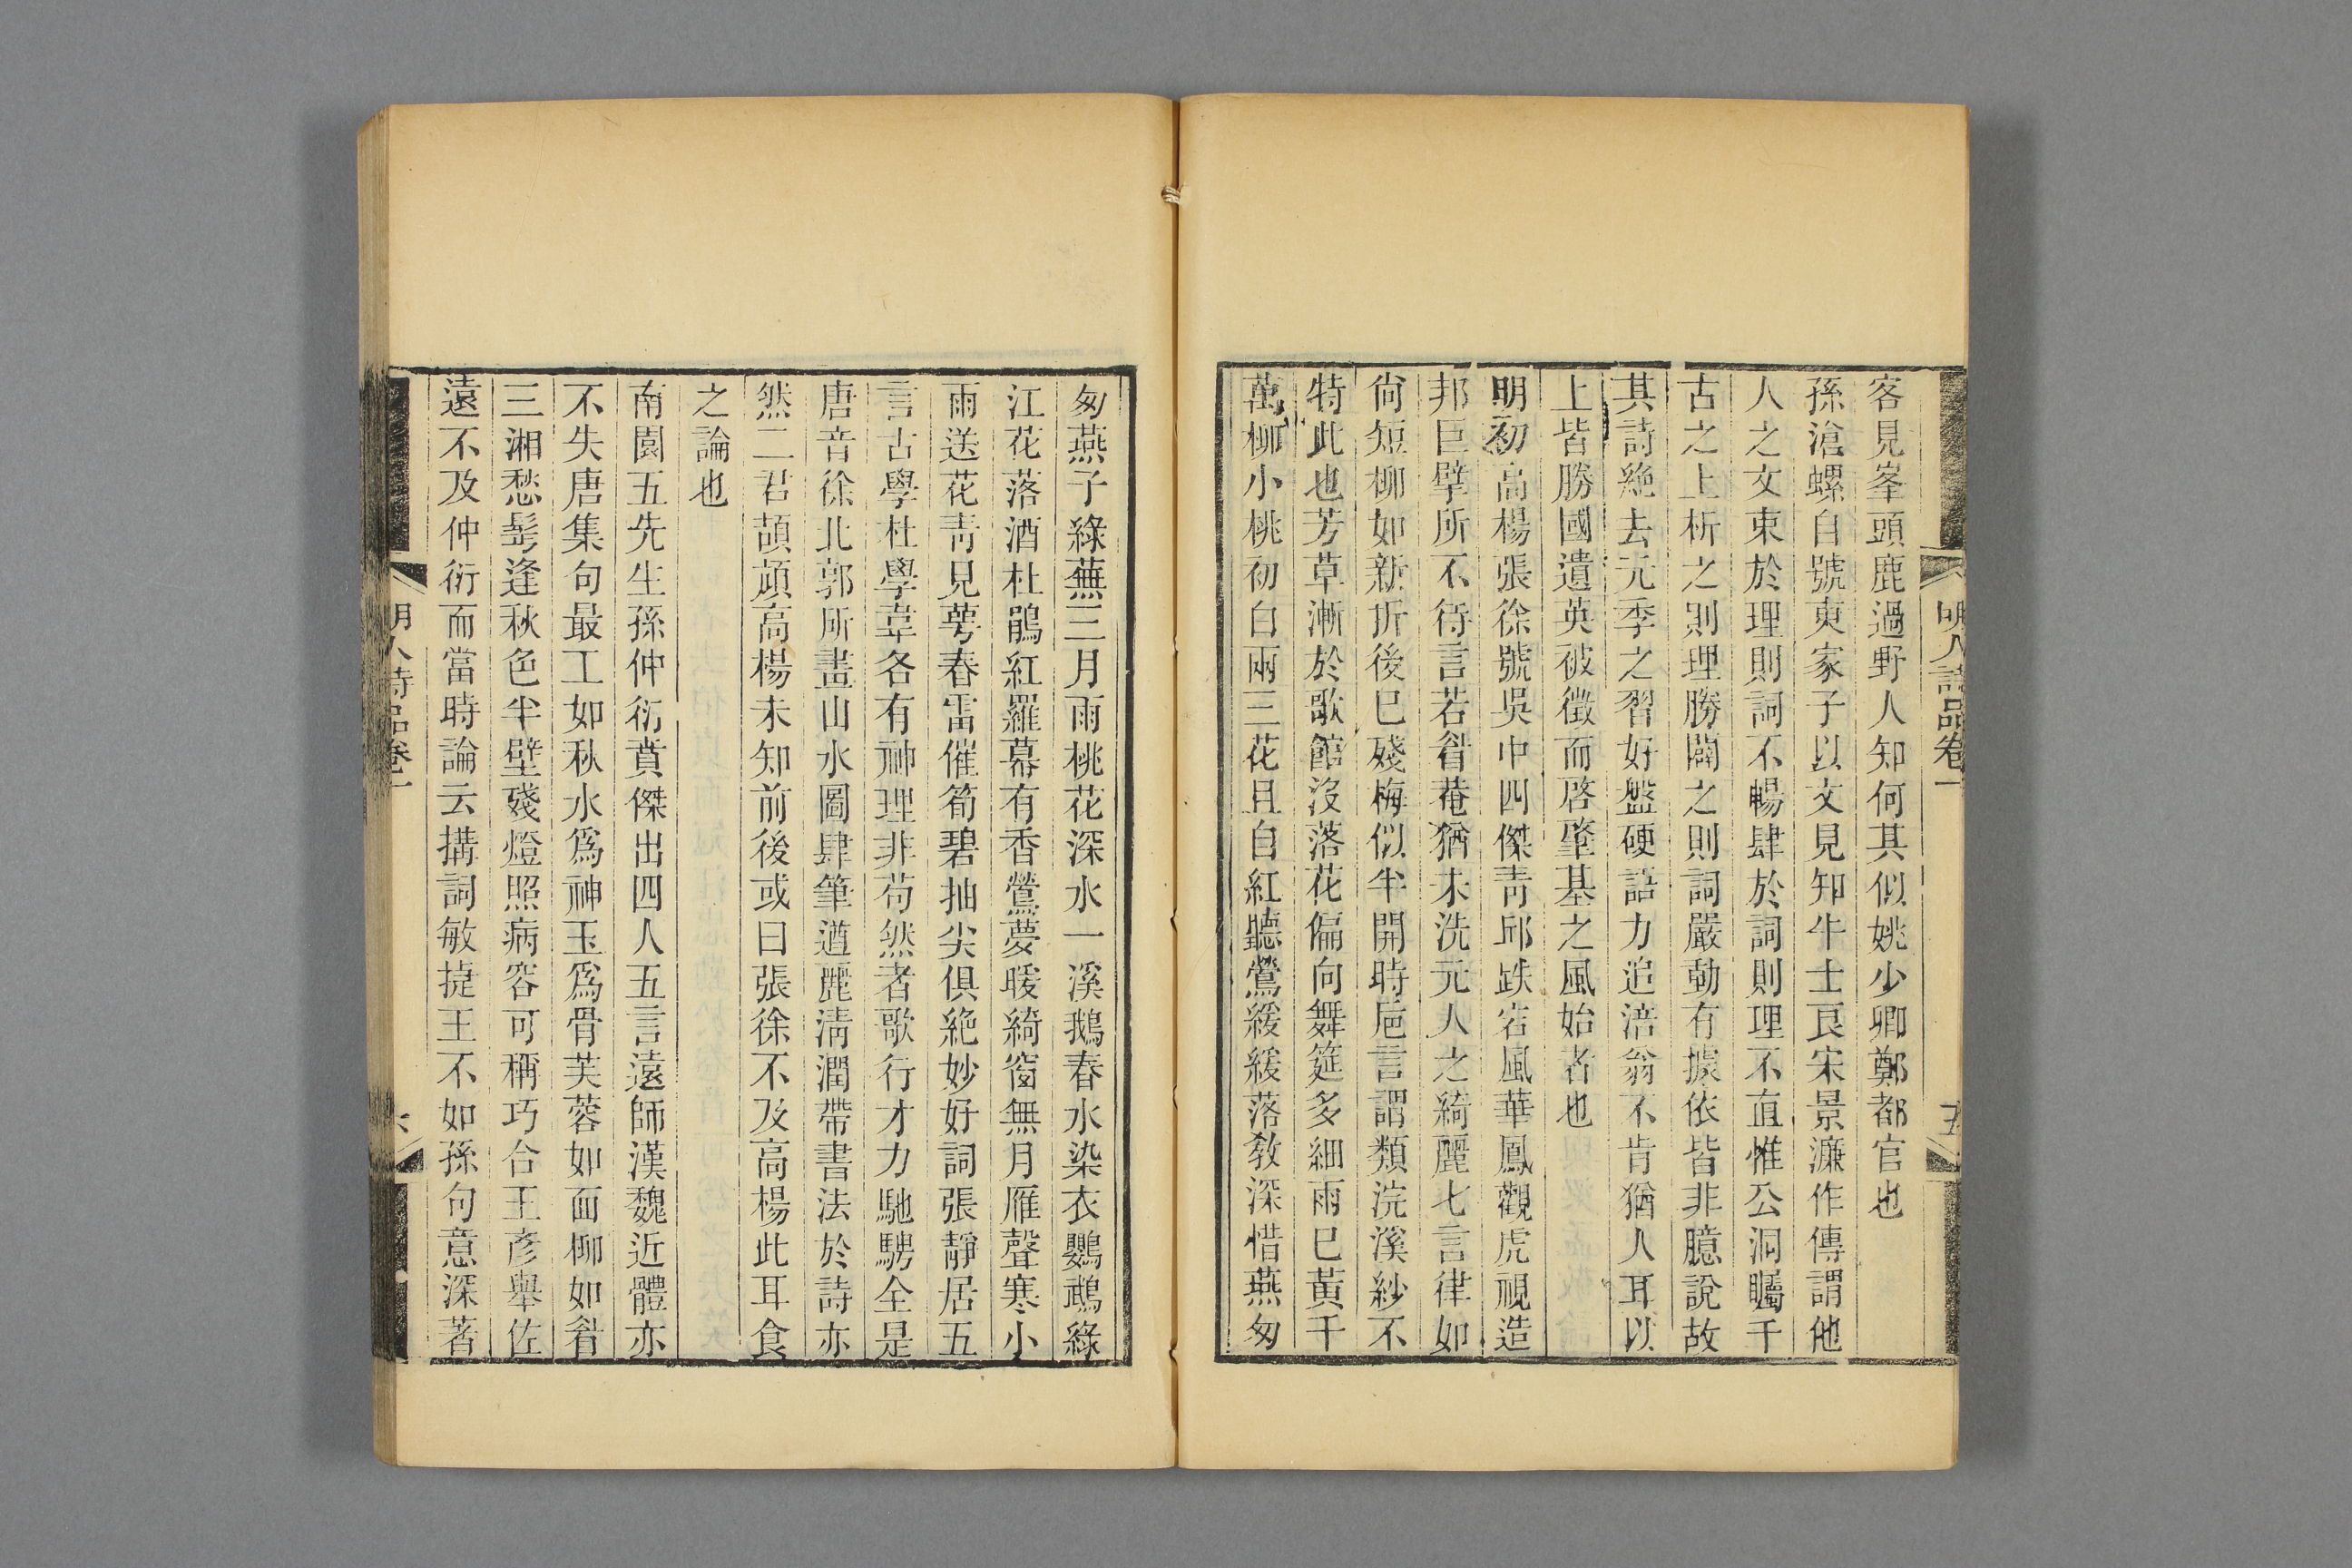 客見峯頭鹿過野人知何其似姚少卿鄭都官也
孫滄螺自號東家子以文見知牛士良宋景濂作傳謂他
人之文束於理則詞不暢肆於詞則理不直惟公洞矚千
古之上析之則理勝闢之則詞嚴動有據依皆非臆說故
其詩絶去元季之習好盤硬語力追涪翁不肯猶人耳以
上皆勝國遺英被徵而啓肇基之風始者也
明初高楊張徐號吳中四傑靑邱跌宕風華鳳觀虎視造
邦巨擘所不待言若眷菴猶未洗元人之綺麗七言律如
尙短柳如新折後巳殘梅似半開時巵言謂類浣溪紗不
特此也芳草漸於歌館沒落花偏向舞筵多細雨巳黃千
萬柳小桃初白兩三花且自紅聽鶯緩緩落敎深惜燕匆
匆燕子綠蕪三月雨桃花深水一溪鵝春水染衣鸚鵡綠
江花落酒杜鵑紅羅幕有香鶯夢暖綺窗無月雁聲寒小
雨送花靑見萼春雷催筍碧抽尖俱絶妙好詞張靜居五
言古學杜學韋各有神理非苟然者歌行才力馳騁全是
唐音徐北郭所畫山水圖肆筆遒麗淸潤帶書法於詩亦
然二君頡頏高楊未知前後或曰張徐不及高楊此耳食
之論也
南園五先生孫仲衍蕡傑出四人五言遠師漢魏近體亦
不失唐集句最工如秋水爲神玉爲骨芙蓉如面柳如眉
三湘愁鬂逢秋色半壁殘燈照病容可稱巧合王彥舉佐
遠不及仲衍而當時論云搆詞敏捷王不如孫句意深著
明人詩品卷一
五
明人詩品卷一
六